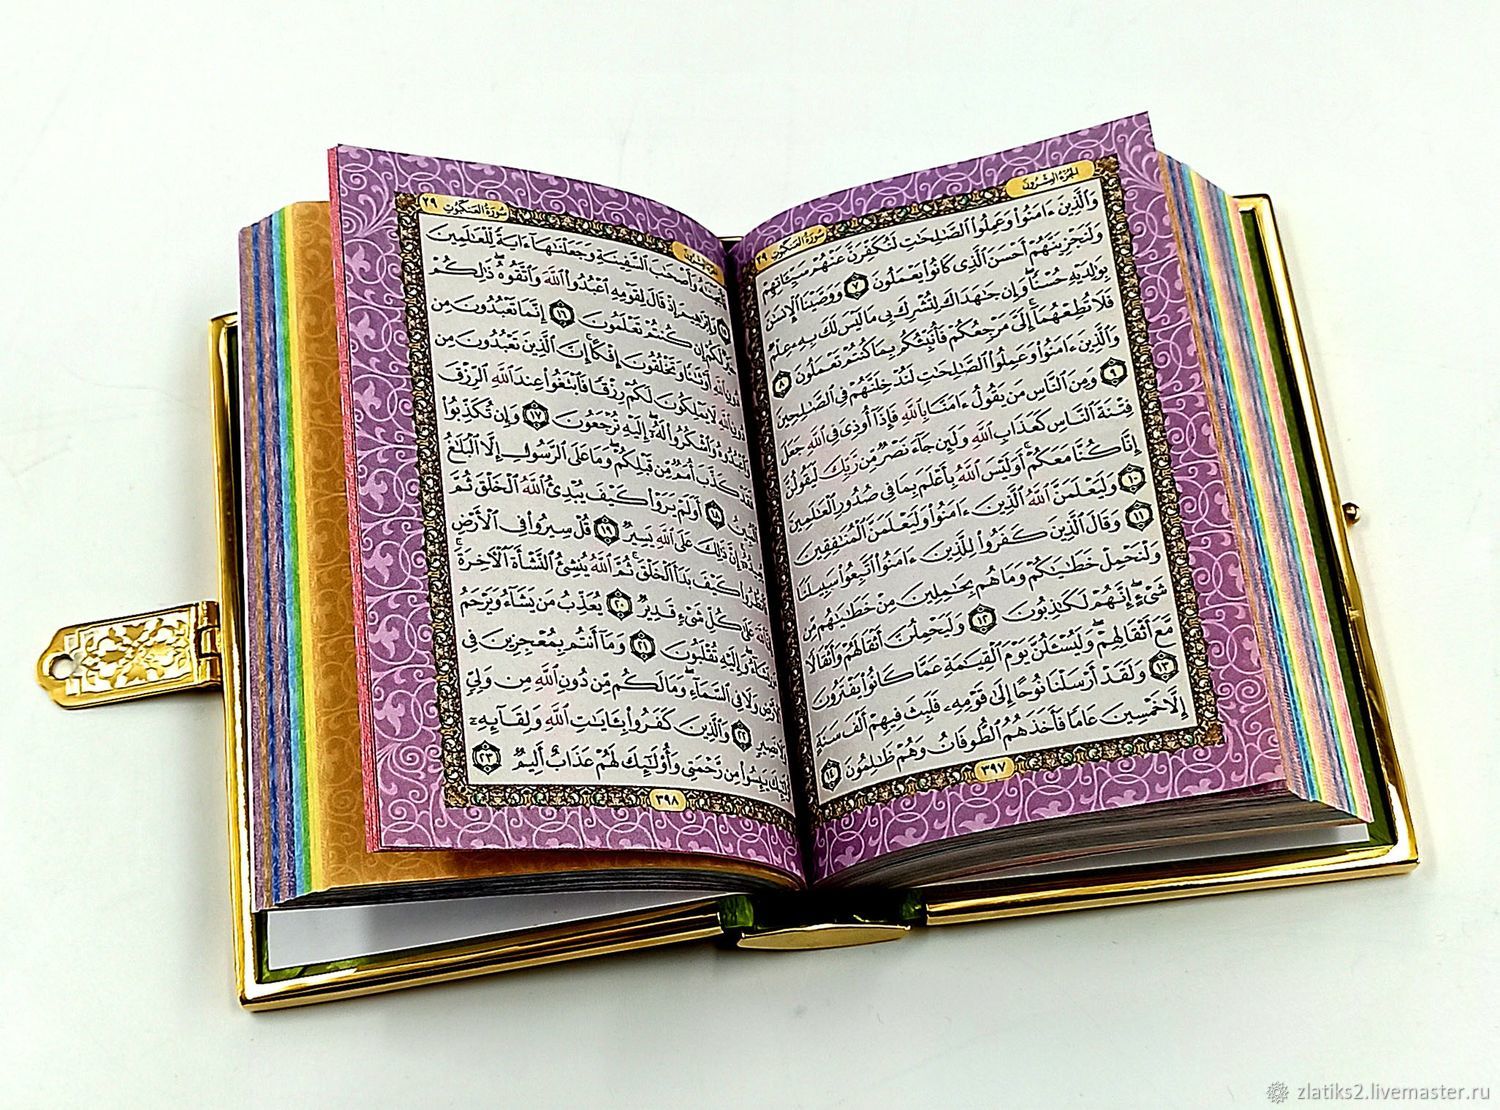 الجُزْءُ العِشْرُونَ
سُورَةُ العَنكَبُوتِ ٢٩
وَٱلَّذِينَ ءَامَنُوا۟ وَعَمِلُوا۟ ٱلصَّٰلِحَٰتِ لَنُكَفِّرَنَّ عَنْهُمْ سَيِّـَٔاتِهِمْ
وَلَنَجْزِيَنَّهُمْ أَحْسَنَ ٱلَّذِى كَانُوا۟ يَعْمَلُونَ ٧ وَوَصَّيْنَا ٱلْإِنسَٰنَ
بِوَٰلِدَيْهِ حُسْنًا وَإِن جَٰهَدَاكَ لِتُشْرِكَ بِى مَا لَيْسَ لَكَ بِهِۦ عِلْمٌ
فَلَا تُطِعْهُمَآ إِلَىَّ مَرْجِعُكُمْ فَأُنَبِّئُكُم بِمَا كُنتُمْ تَعْمَلُونَ ٨
وَٱلَّذِينَ ءَامَنُوا۟ وَعَمِلُوا۟ ٱلصَّٰلِحَٰتِ لَنُدْخِلَنَّهُمْ فِى ٱلصَّٰلِحِينَ
٩ وَمِنَ ٱلنَّاسِ مَن يَقُولُ ءَامَنَّا بِٱللَّهِ فَإِذَآ أُوذِىَ فِى ٱللَّهِ جَعَلَ
فِتْنَةَ ٱلنَّاسِ كَعَذَابِ ٱللَّهِ وَلَئِن جَآءَ نَصْرٌ مِّن رَّبِّكَ لَيَقُولُنَّ
إِنَّا كُنَّا مَعَكُمْ أَوَلَيْسَ ٱللَّهُ بِأَعْلَمَ بِمَا فِى صُدُورِ ٱلْعَٰلَمِينَ
١٠ وَلَيَعْلَمَنَّ ٱللَّهُ ٱلَّذِينَ ءَامَنُوا۟ وَلَيَعْلَمَنَّ ٱلْمُنَٰفِقِينَ
١١ وَقَالَ ٱلَّذِينَ كَفَرُوا۟ لِلَّذِينَ ءَامَنُوا۟ ٱتَّبِعُوا۟ سَبِيلَنَا
وَلْنَحْمِلْ خَطَٰيَٰكُمْ وَمَا هُم بِحَٰمِلِينَ مِنْ خَطَٰيَٰهُم مِّن
شَىْءٍ إِنَّهُمْ لَكَٰذِبُونَ ١٢ وَلَيَحْمِلُنَّ أَثْقَالَهُمْ وَأَثْقَالًا
مَّعَ أَثْقَالِهِمْ وَلَيُسْـَٔلُنَّ يَوْمَ ٱلْقِيَٰمَةِ عَمَّا كَانُوا۟ يَفْتَرُونَ
١٣ وَلَقَدْ أَرْسَلْنَا نُوحًا إِلَىٰ قَوْمِهِۦ فَلَبِثَ فِيهِمْ أَلْفَ سَنَةٍ
إِلَّا خَمْسِينَ عَامًا فَأَخَذَهُمُ ٱلطُّوفَانُ وَهُمْ ظَٰلِمُونَ ١٤
٣٩٧
سُورَةُ العَنكَبُوتِ ٢٩
وَأَصْحَٰبَ ٱلسَّفِينَةِ وَجَعَلْنَٰهَآ ءَايَةً لِّلْعَٰلَمِينَ
وَإِبْرَٰهِيمَ إِذْ قَالَ لِقَوْمِهِ ٱعْبُدُوا۟ ٱللَّهَ وَٱتَّقُوهُ ذَٰلِكُمْ
لَّكُمْ إِن كُنتُمْ تَعْلَمُونَ ١٦ إِنَّمَا تَعْبُدُونَ مِن
أَوْثَٰنًا وَتَخْلُقُونَ إِفْكًا إِنَّ ٱلَّذِينَ تَعْبُدُونَ مِن
ٱللَّهِ لَا يَمْلِكُونَ لَكُمْ رِزْقًا فَٱبْتَغُوا۟ عِندَ ٱللَّهِ ٱلرِّزْقَ
وَٱشْكُرُوا۟ لَهُۥٓ إِلَيْهِ تُرْجَعُونَ ١٧ وَإِن تُكَذِّبُوا۟
فَقَدْ كَذَّبَ أُمَمٌ مِّن قَبْلِكُمْ وَمَا عَلَى ٱلرَّسُولِ إِلَّا ٱلْبَلَٰغُ
١٨ أَوَلَمْ يَرَوْا۟ كَيْفَ يُبْدِئُ ٱللَّهُ ٱلْخَلْقَ ثُمَّ
إِنَّ ذَٰلِكَ عَلَى ٱللَّهِ يَسِيرٌ ١٩ قُلْ سِيرُوا۟ فِى ٱلْأَرْضِ
كَيْفَ بَدَأَ ٱلْخَلْقَ ثُمَّ ٱللَّهُ يُنشِئُ ٱلنَّشْأَةَ ٱلْءَاخِرَةَ
عَلَىٰ كُلِّ شَىْءٍ قَدِيرٌ ٢٠ يُعَذِّبُ مَن يَشَآءُ وَيَرْحَمُ
وَإِلَيْهِ تُقْلَبُونَ ٢١ وَمَآ أَنتُم بِمُعْجِزِينَ فِى
وَلَا فِى ٱلسَّمَآءِ وَمَا لَكُم مِّن دُونِ ٱللَّهِ مِن وَلِىٍّ
نَصِيرٍ ٢٢ وَٱلَّذِينَ كَفَرُوا۟ بِـَٔايَٰتِ ٱللَّهِ وَلِقَآئِهِۦٓ
يَئِسُوا۟ مِن رَّحْمَتِى وَأُو۟لَٰٓئِكَ لَهُمْ عَذَابٌ أَلِيمٌ ٢٣
٣٩٨
zlatiks2.livemaster.ru